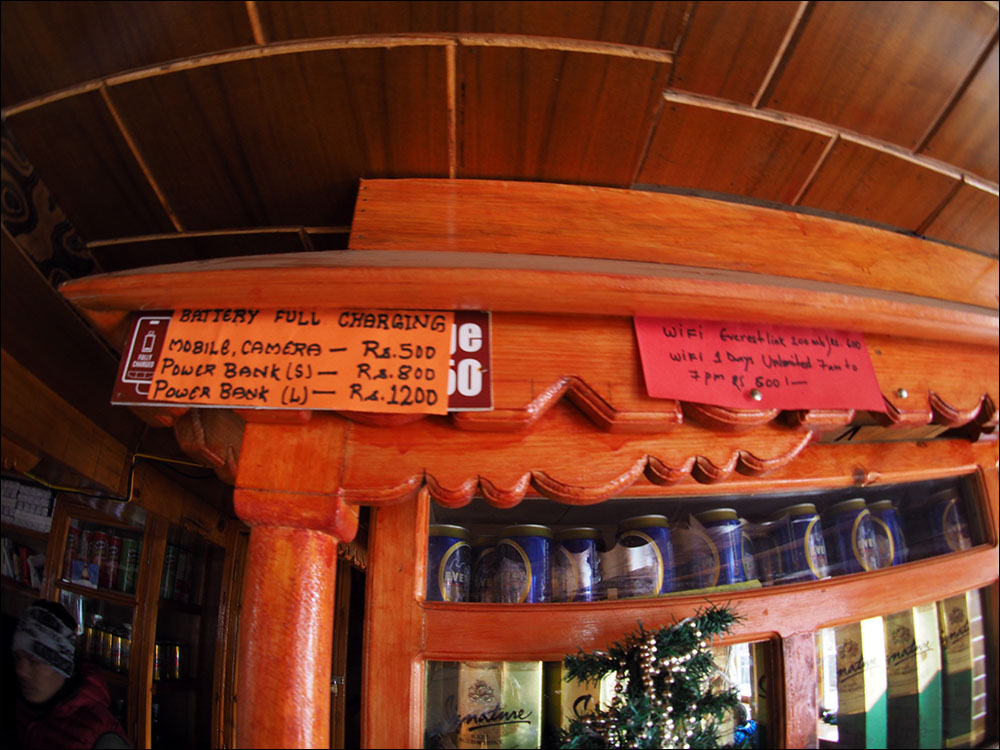 BATTERY FULL CHARGING
MOBILE, CAMERA — Rs. 500
POWER BANK (S) — Rs. 800
POWER BANK (L) — Rs. 1200
FULLY
CHARGED
ge
50
WiFi Everestlink 200mb/Rs. 600
WiFi 1 Days Unlimited 7am to
7pm Rs 600/—
EVE
Signature
Signature
Signature
Signature